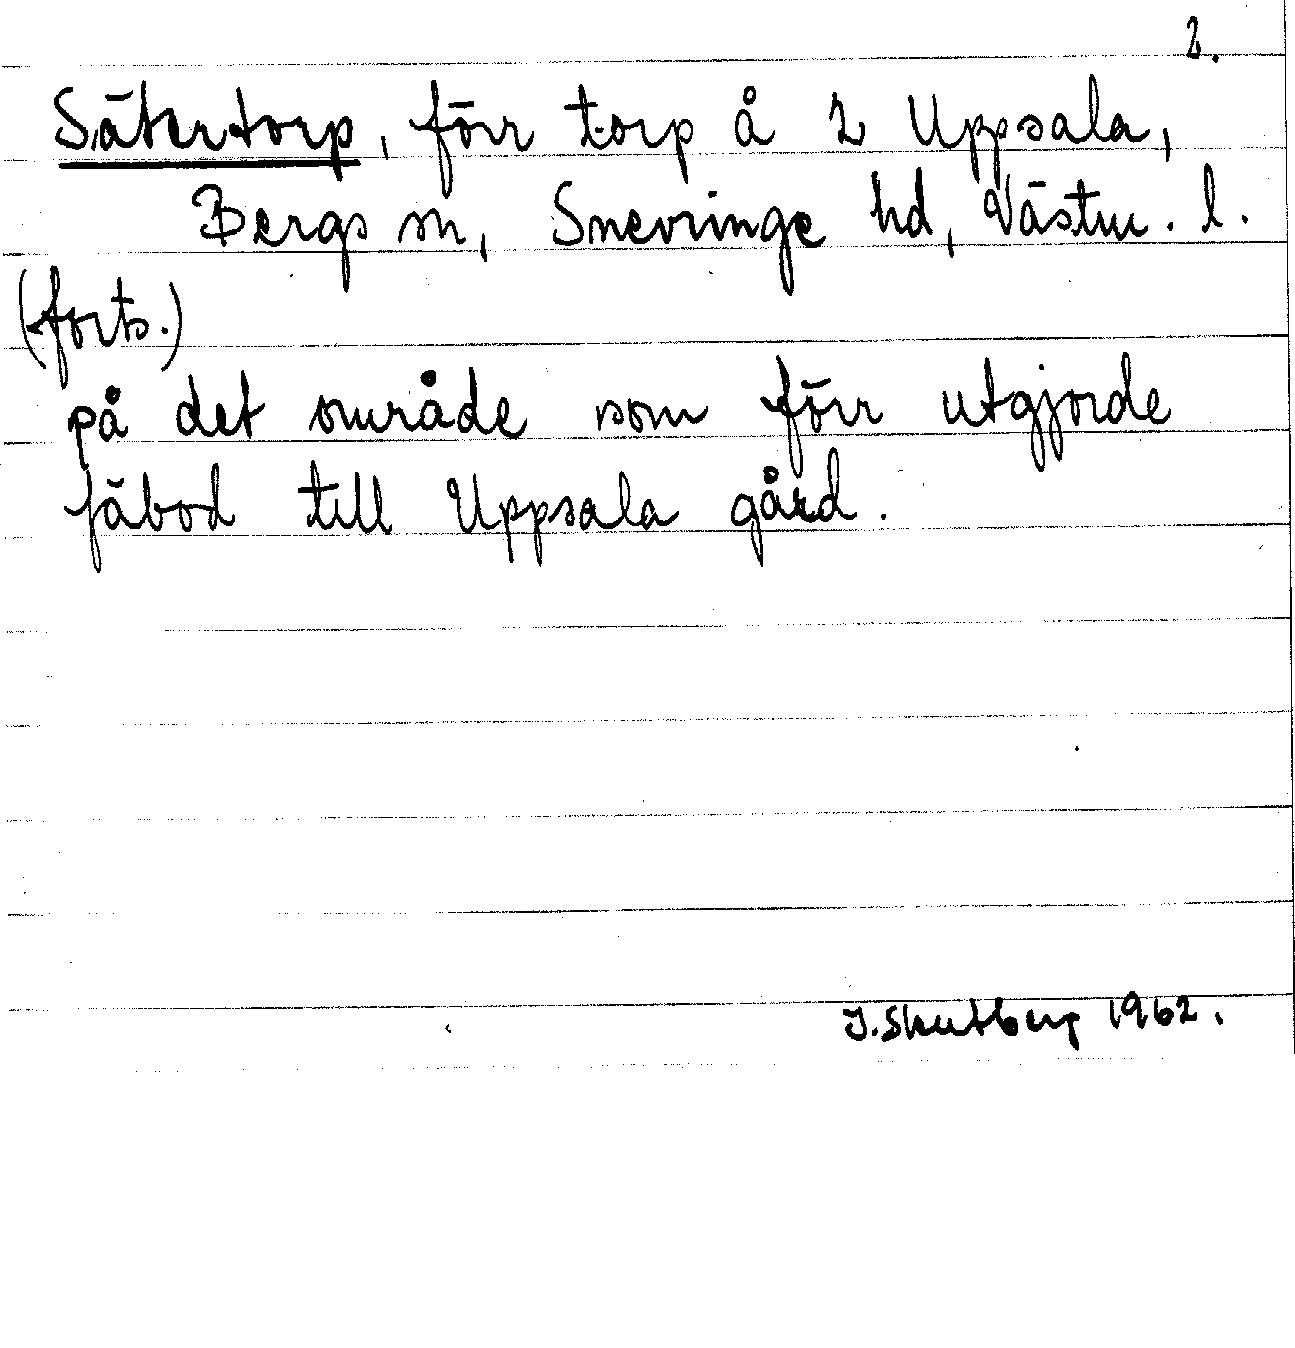 2.
Sätertorp, förr torp å 2 Uppsala,
Bergs sn, Snevringe hd, Västm. l.
(forts.)
på det område som förr utgjorde
fäbod till Uppsala gård.
J. Skutberg 1962.